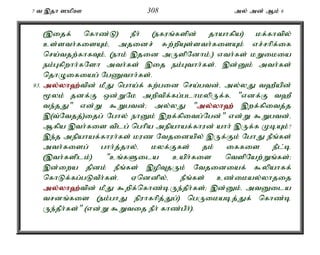 7 வ இதா ஸமிஊ 308 அல் அன் ஆம் 6
(இதைக் கொண்டு) நீர் (நகரங்களின் தாயாகிய) மக்காவில்
உள்ளவர்களையும், அதனைச் சுற்றியுள்ளவர்களையும் எச்சரிக்கை
செய்வதற்காகவும், (நாம் இதனை அருளினோம்.) எவர்கள் மறுமையை
நம்புகிறார்களோ அவர்கள் இதை நம்புவார்கள். இன்னும் அவர்கள்
தொழுகையைப் பேணுவார்கள்.
93. அல்லாஹ்வின் மீது பொய்க் கற்பனை செய்பவன், அல்லது வஹீயின்
மூலம் தனக்கு ஒன்றுமே அறிவிக்கப்படாமலிருக்க, "எனக்கு வஹீ
வந்தது" என்று கூறுபவன்; அல்லது "அல்லாஹ் இறக்கிவைத்த
(இவ்வேதத்)தைப் போல் நானும் இறக்கிவைப்பேன்" என்று கூறுபவன்,
ஆகிய இவர்களை விடப் பெரிய அநியாயக்காரன் யார் இருக்க முடியும்?
இந்த அநியாயக்காரர்கள் மரண வேதனையில் இருக்கும் போது நீங்கள்
அவர்களைப் பார்த்தால், மலக்குகள் தம் கைகளை நீட்டி
(இவர்களிடம்) "உங்களுடைய உயிர்களை வெளியேற்றுங்கள்;
இன்றைய தினம் நீங்கள் இழிவுதரும் வேதனையைக் கூலியாகக்
கொடுக்கப்படுவீர்கள். ஏனெனில், நீங்கள் உண்மையல்லாததை
அல்லாஹ்வின் மீது கூறிக்கொண்டிருந்தீர்கள்; இன்னும், அவனுடைய
வசனங்களை (நம்பாது நிராகரித்துப்) பெருமையடித்துக் கொண்டி
ருந்தீர்கள்" (என்று கூறுவதை நீர் காண்பீர்).